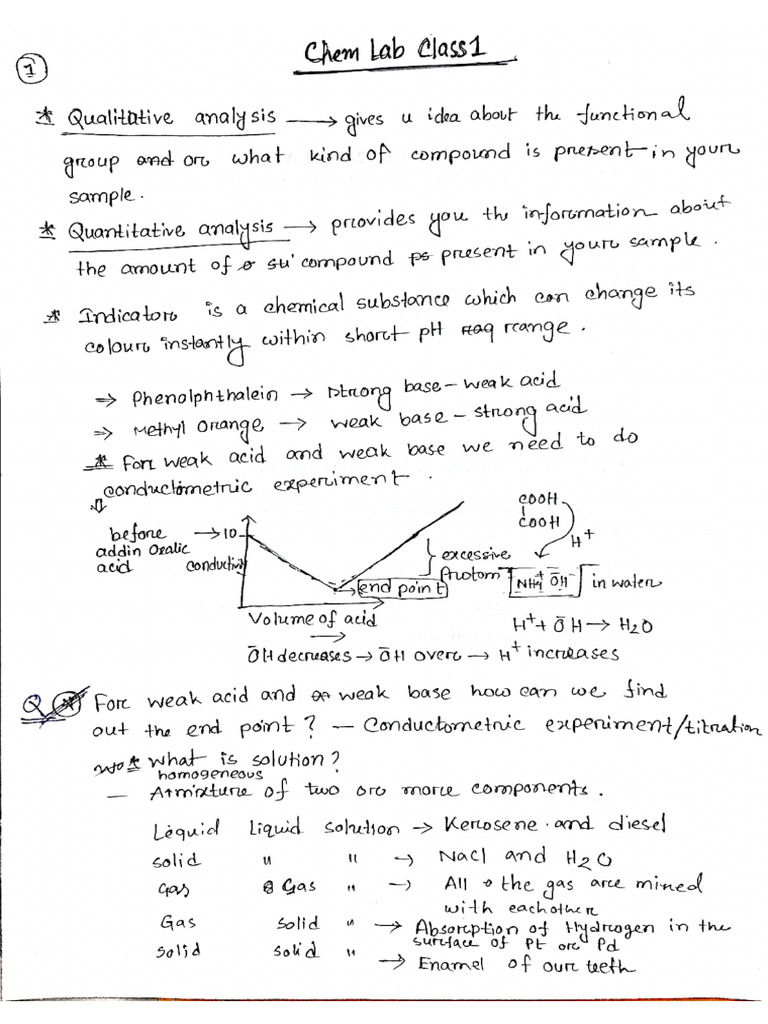 Chem Lab Class1
1
* Qualitative analysis → gives u idea about the functional
group and or what kind of compound is present in your
sample.
* Quantitative analysis → provides you the information about
the amount of compound present in your sample.
* Indicator is a chemical substance which can change its
colour instantly within short pH range.
⇒ Phenolphthalein → strong base - weak acid
⇒ Methyl Orange → weak base - strong acid
* For weak acid and weak base we need to do
conductometric experiment.
before
addin Oxalic
acid
→ 10
conductivi
end point
Volume of acid
excessive
Proton
COOH
COOH
H⁺
NH₄⁺ ŌH
in water
H⁺ + ŌH → H₂O
ŌH decreases → ŌH over → H⁺ increases
Q * For weak acid and weak base how can we find
out the end point? — Conductometric experiment/titration
* What is solution?
homogeneous
— A mixture of two or more components.
Lequid Liquid solution → Kerosene and diesel
solid " " → Nacl and H₂O
Gas Gas " → All the gas are mined
with eachother
Gas solid " → Absorption of Hydrogen in the
surface of Pt or Pd
solid solid " → Enamel of our teeth